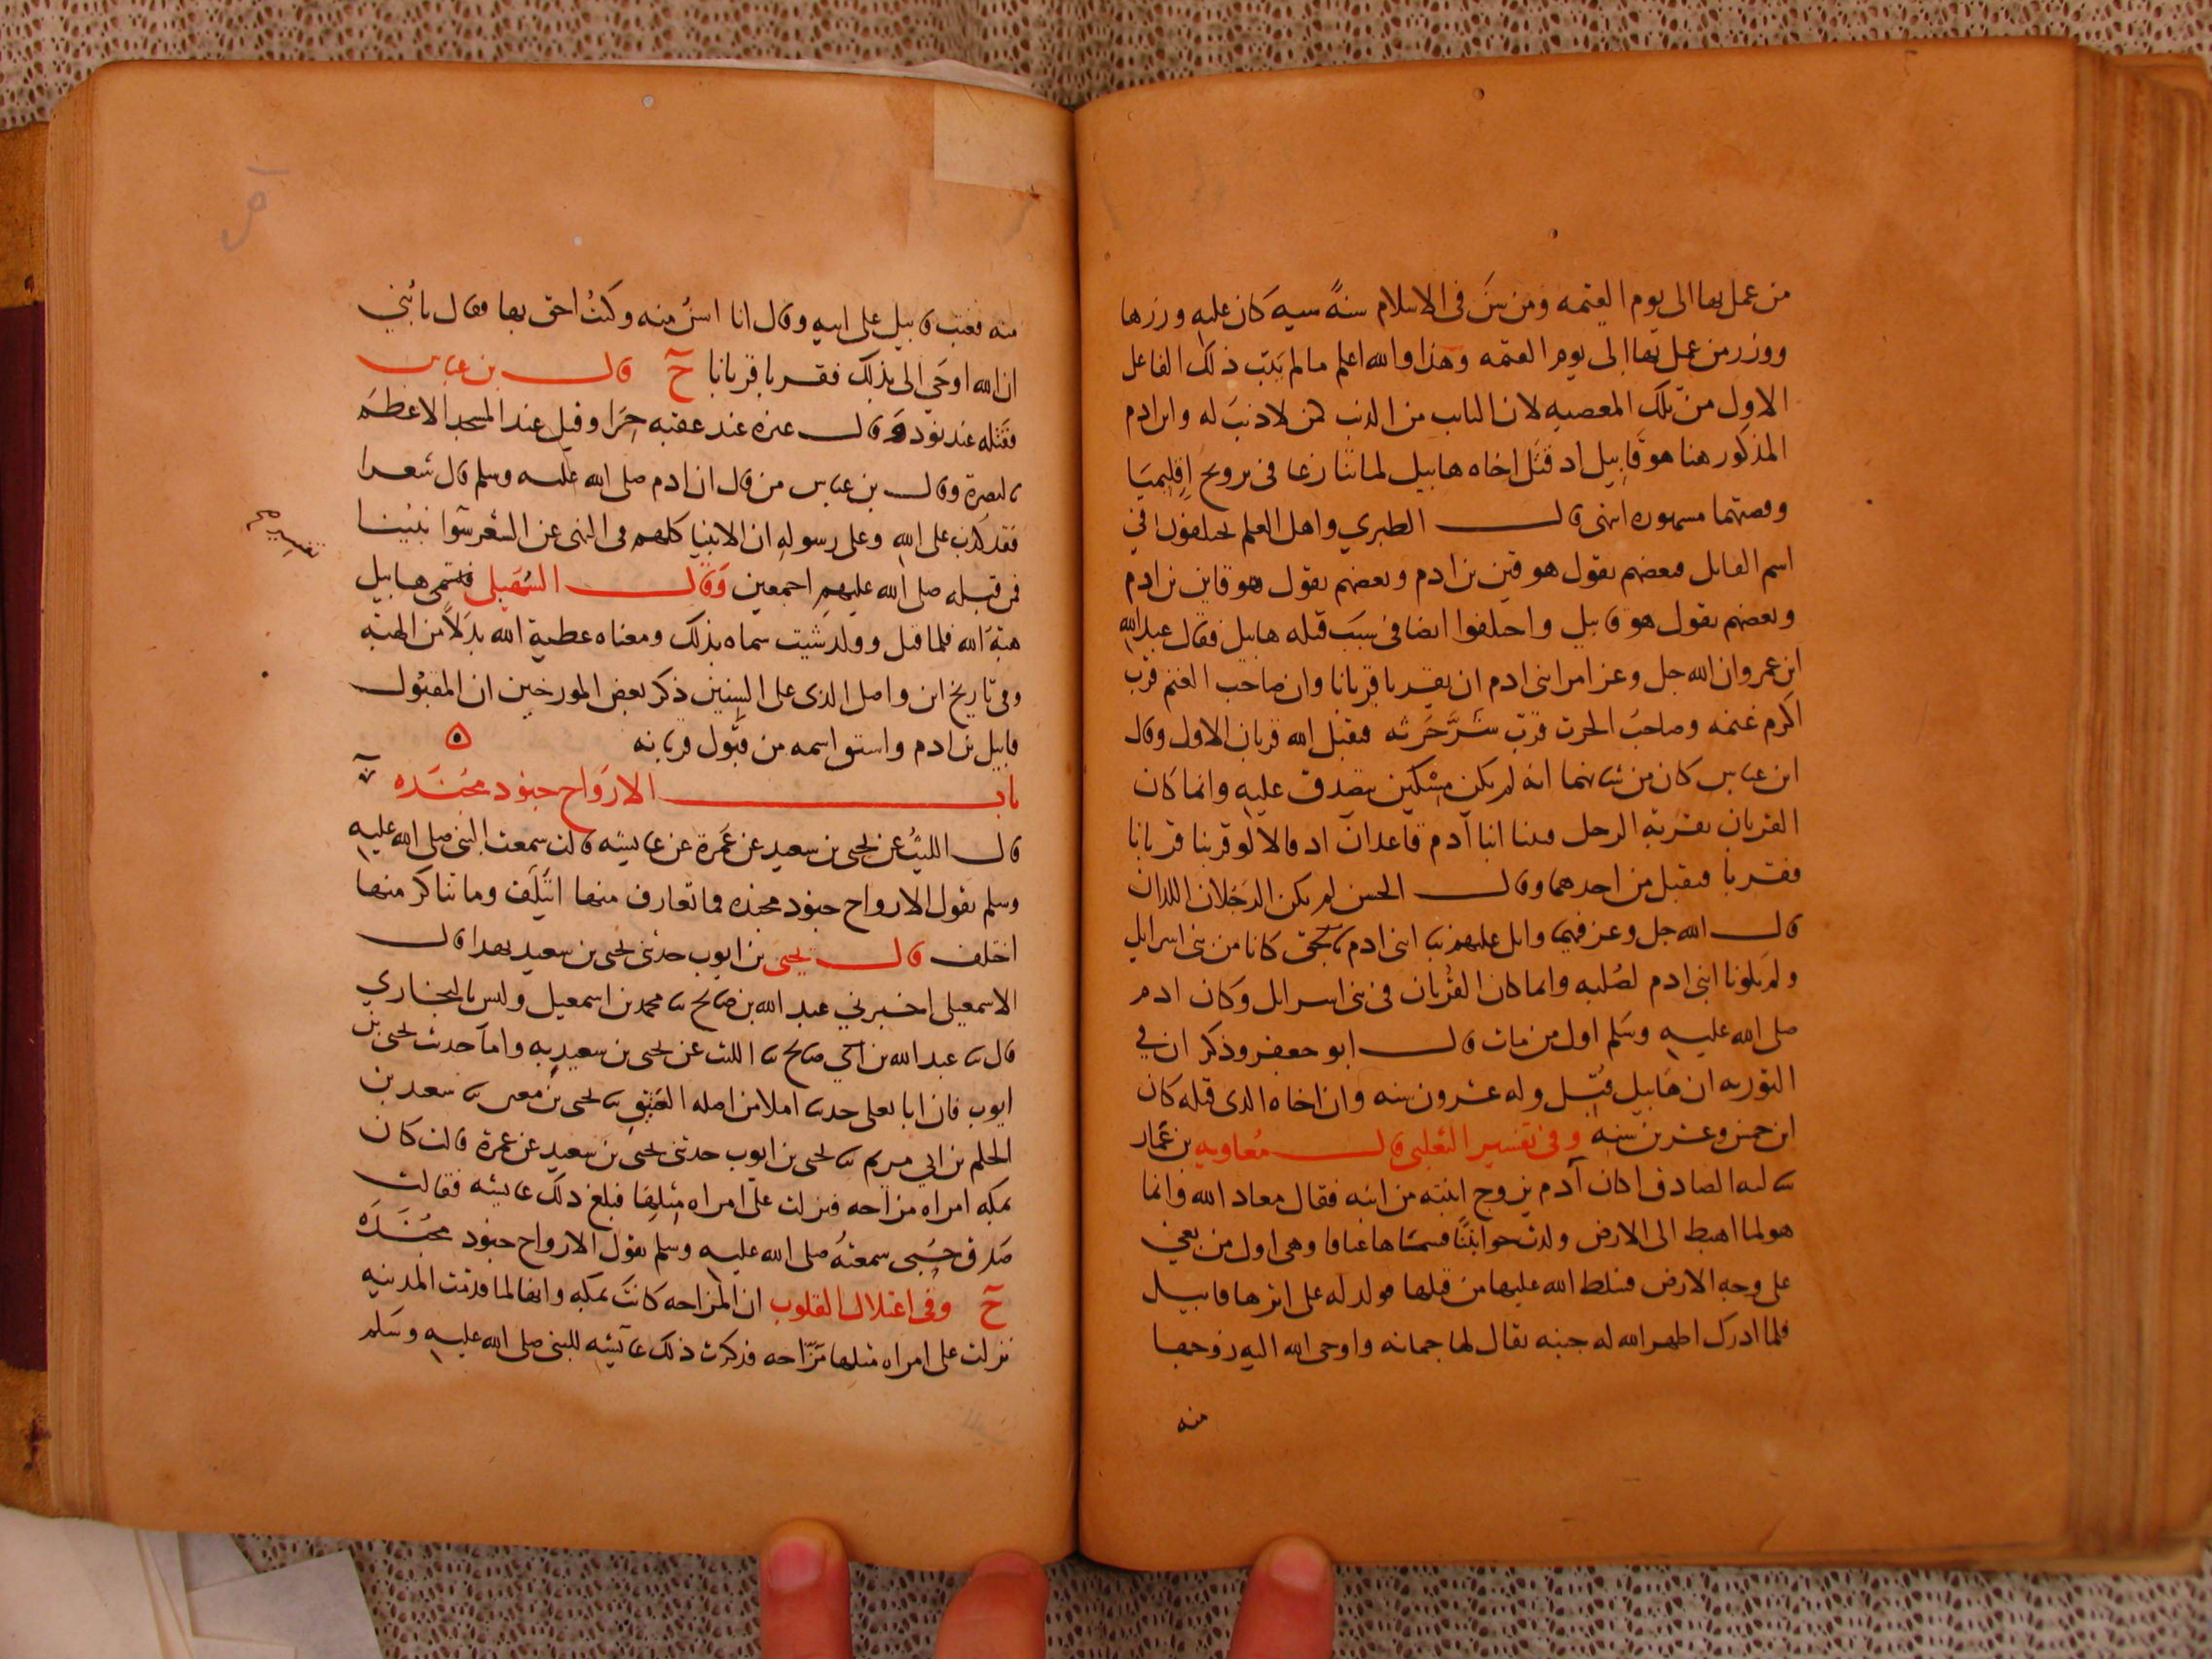 من عمل بها الى يوم القيمه ومن سَنَ فى الاسلام سنةً سيه كان عليه وزرها
ووزر من عمل بها الى يوم القيمه وهذا والله اعلم ما لم يتب ذلك الفاعل
الاول من تلك المعصيه لان التايب من الذنب كمن لا ذنب له وابن ادم
المذكور هنا هو قابيل اذ قتل اخاه هابيل لما تنازعا فى تزويج اقليميا
وقصتهما مشهوره انتهى قال الطبري واهل العلم يختلفون في
اسم القاتل فبعضهم يقول هو قين بن ادم وبعضهم يقول هو قاين بن ادم
وبعضهم يقول هو قابيل واختلفوا ايضا فى سبب قتله هابيل فقال عبد الله
ابن عمرو ان الله جل وعز امر ابنى ادم ان يقربا قربانا وان صاحب الغنم قرب
اكرم غنمه وصاحب الحرث قرب شَرَّ حَرثه فتقبل الله قربان الاول وقال
ابن عباس كان من شانهما انه لم يكن مسكين يتصدق عليه وانما كان
القربان يقربه الرجل فبينا ابنا آدم قاعدان اذ قالا لو قربنا قربانا
فقربا فتقبل من احدهما وقال الحسن لم يكن الرجلان اللذان
قال الله جل وعز فيهما واتل عليهم نبا ابنى ادم بالحق كانا من بنى اسرايل
ولم يكونا ابنى ادم لصُلبه وانما كان القُربان فى بنى اسرايل وكان ادم
صلى الله عليه وسَلم اول من مات قال ابو جعفر وذكر ان في
التوريه ان هابيل قُتِل وله عشرون سنه وان اخاه الذى قتله كان
ابن خمس وعشرين سنه وفى تفسير الثعلبى قال مُعاويه بن عمار
سالت الصادق اكان آدم يزوج ابنته من ابنه فقال معاذ الله وانما
هو لما اهبط الى الارض ولدت حوا بنتًا فسماها عناقا وهى اول من بغي
على وجه الارض فسلط الله عليها من قتلها فولد له على اثرها قابيل
فلما ادرك اظهر الله له جنيه يقال لها جمانه واوحى الله اليه زوجها
منه
منه فعتب قابيل على ابيه وقال انا اسنُ منه وكنتُ احق بها فقال يا بُني
ان الله اوحَي الى بذلك فقربا قربانا ح قال بن عباس
فقتله عند نود وقال غيره عند عقبه حِرَا وقيل عند المسجد الاعظم
بالبصرة وقال بن عباس من قال ان ادم صلى الله عليه وسلم قال شعرا
فقد كذب على الله وعلى رسوله ان الانبيا كلهم فى النهى عن الشعر سَوا نبينا
فمن قبله صلى الله عليهم اجمعين وَقال السُهيلى فسمى هابيل
هبة الله فلما قتل وولد شيت سماه بذلك ومعناه عطية الله بدَلاً من الهبة
وفى تاريخ ابن واصل الذى على السنين ذكر بعض المورخين ان المقبُول
قابيل بن ادم واستق اسمه من قبُول قربانه
باب الارَواح جنود مجندَه
قال الليثُ عن يحيى بن سعيد عن عَمرة عن عايشه قالت سمعت النبى صلى الله عليه
وسلم يقول الارواح جنود مجنده فما تعارف منها ائتلف وما تناكر منها
اختلف قال يحيى بن ايوب حدثنى يحيى بن سعيد بهذا قال
الاسمعيلى اخبرني عبد الله بن صالح محمد بن اسمعيل وليس بالبخاري
قال عبد الله بن صالح الليث عن يحيى بن سعيد به واما حديث يحيى بن
ايوب فان ابا يعلى املا من اصله يحيى بن معين سعيد بن
الحكم بن ابي مريم يحيى بن ايوب حدثنى يحيى بن سعيد عن عمرة قالت كان
بمكه امراه مزاحه فنزلت على امراه مثلها فبلغ ذلك عايشه فقالت
صَدق حبى سمعتهُ صلى الله عليه وسلم يقول الارواح جنود مجُندَه
ح وفى اعتلال القلوب ان المزاحه كانت بمكه وانها لما قدمت المدينه
نزلت على امراه مثلها مَزّاحه فذكرت ذلك عايشه للنبى صلى الله عليه وسَلم